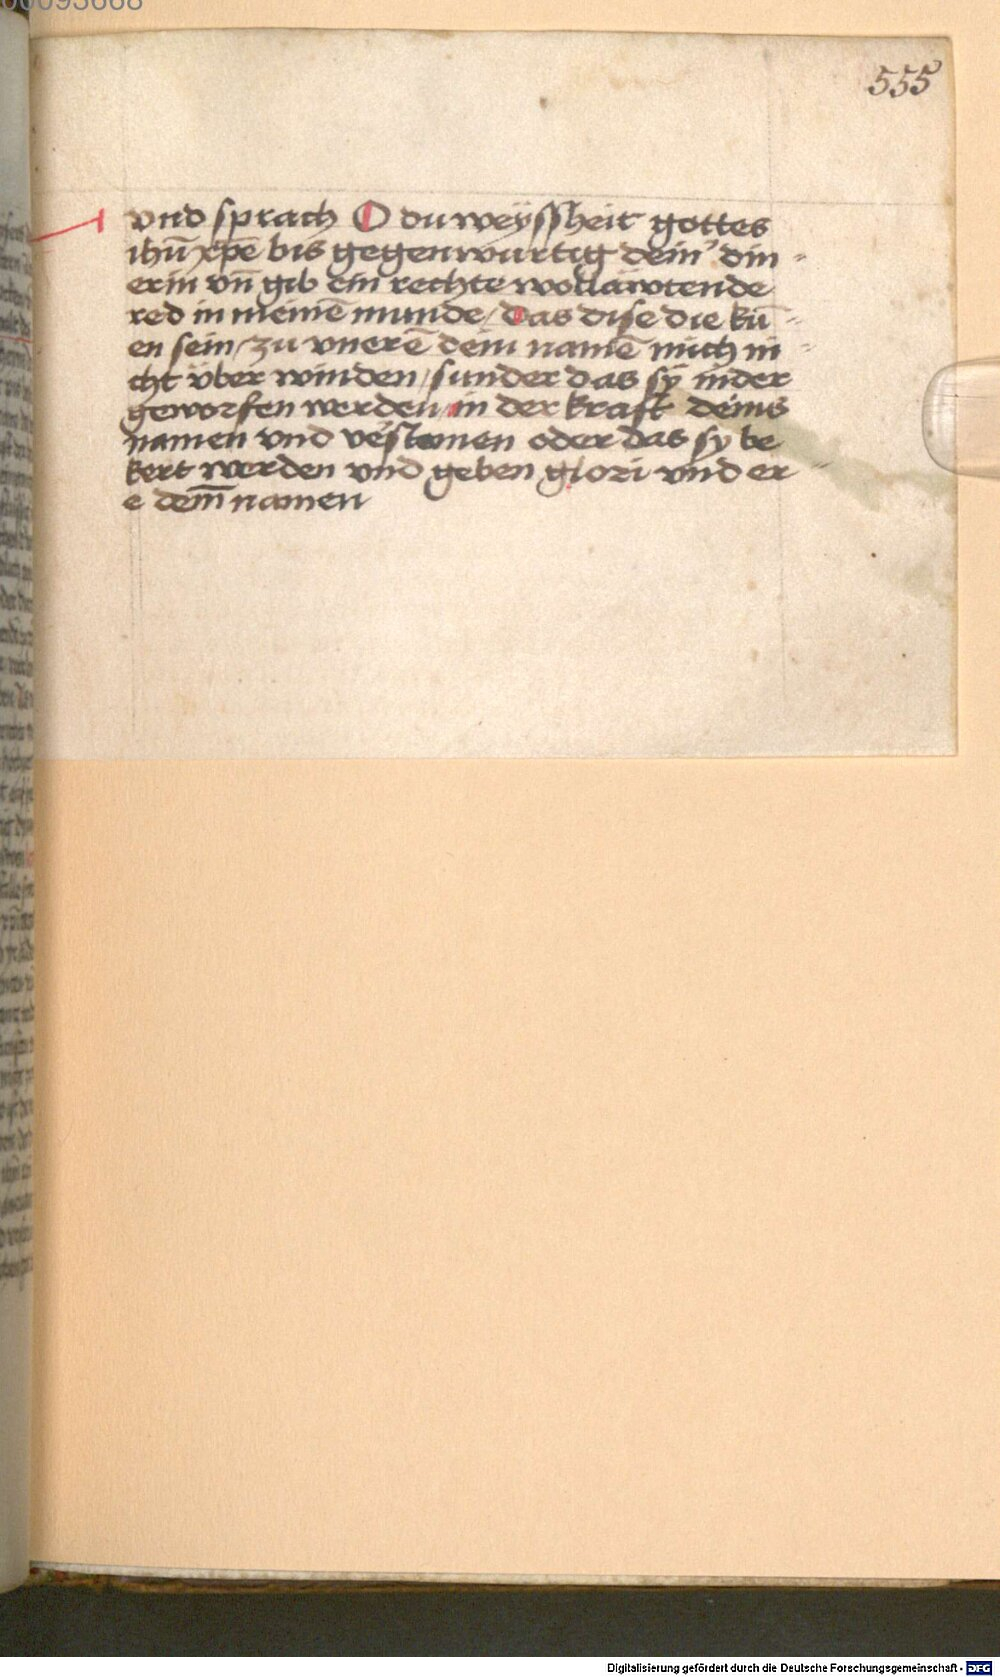 555
vnd sprach O du weyssheit gottes
ihū xpē bis gegenwurtig dein' din-
erin vn̄ gib ein rechte wollawtende
red in meinē munde / das dise die kū-
en sein / zu vnerē deim namē mich ni-
cht vber winden / sunder das sy nider
geworfen werden in der kraft deins
namen vnd verstomen oder das sy be
kert werden vnd geben glori vnd er-
e deim̄ namen
00093668
Digitalisierung gefördert durch die Deutsche Forschungsgemeinschaft - DFG